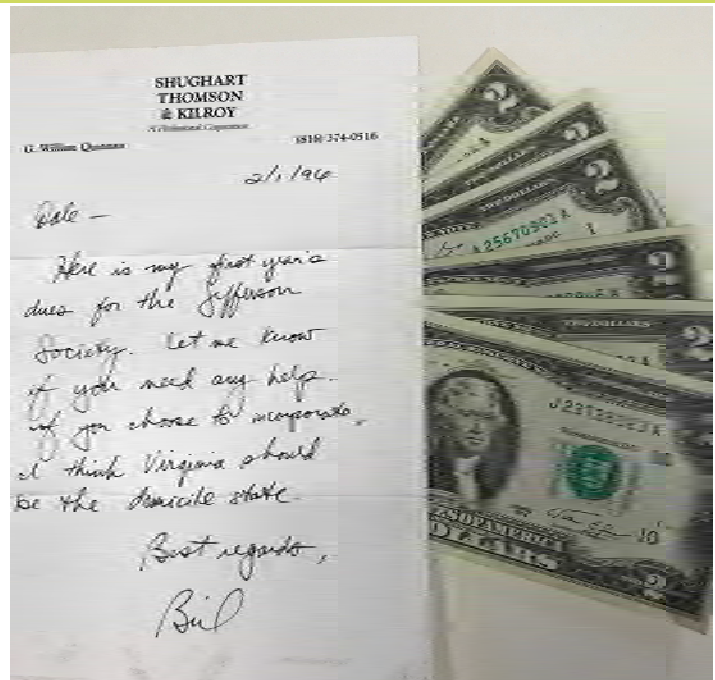 SHUGHART
THOMSON
& KILROY
A Professional Corporation
G. William
(816) 374-0516
2/1/96
Dale -
Here is my first year's
dues for the Jefferson
Society. Let me know
if you need any help.
If you choose to incorporate,
I think Virginia should
be the domicile state.
Best regards,
Bill
2
TWO DOLLARS
2
TWO DOLLARS
2
A 25670502 A
2
TWO DOLLARS
2
10
OF AMERICA
DOLLARS
2